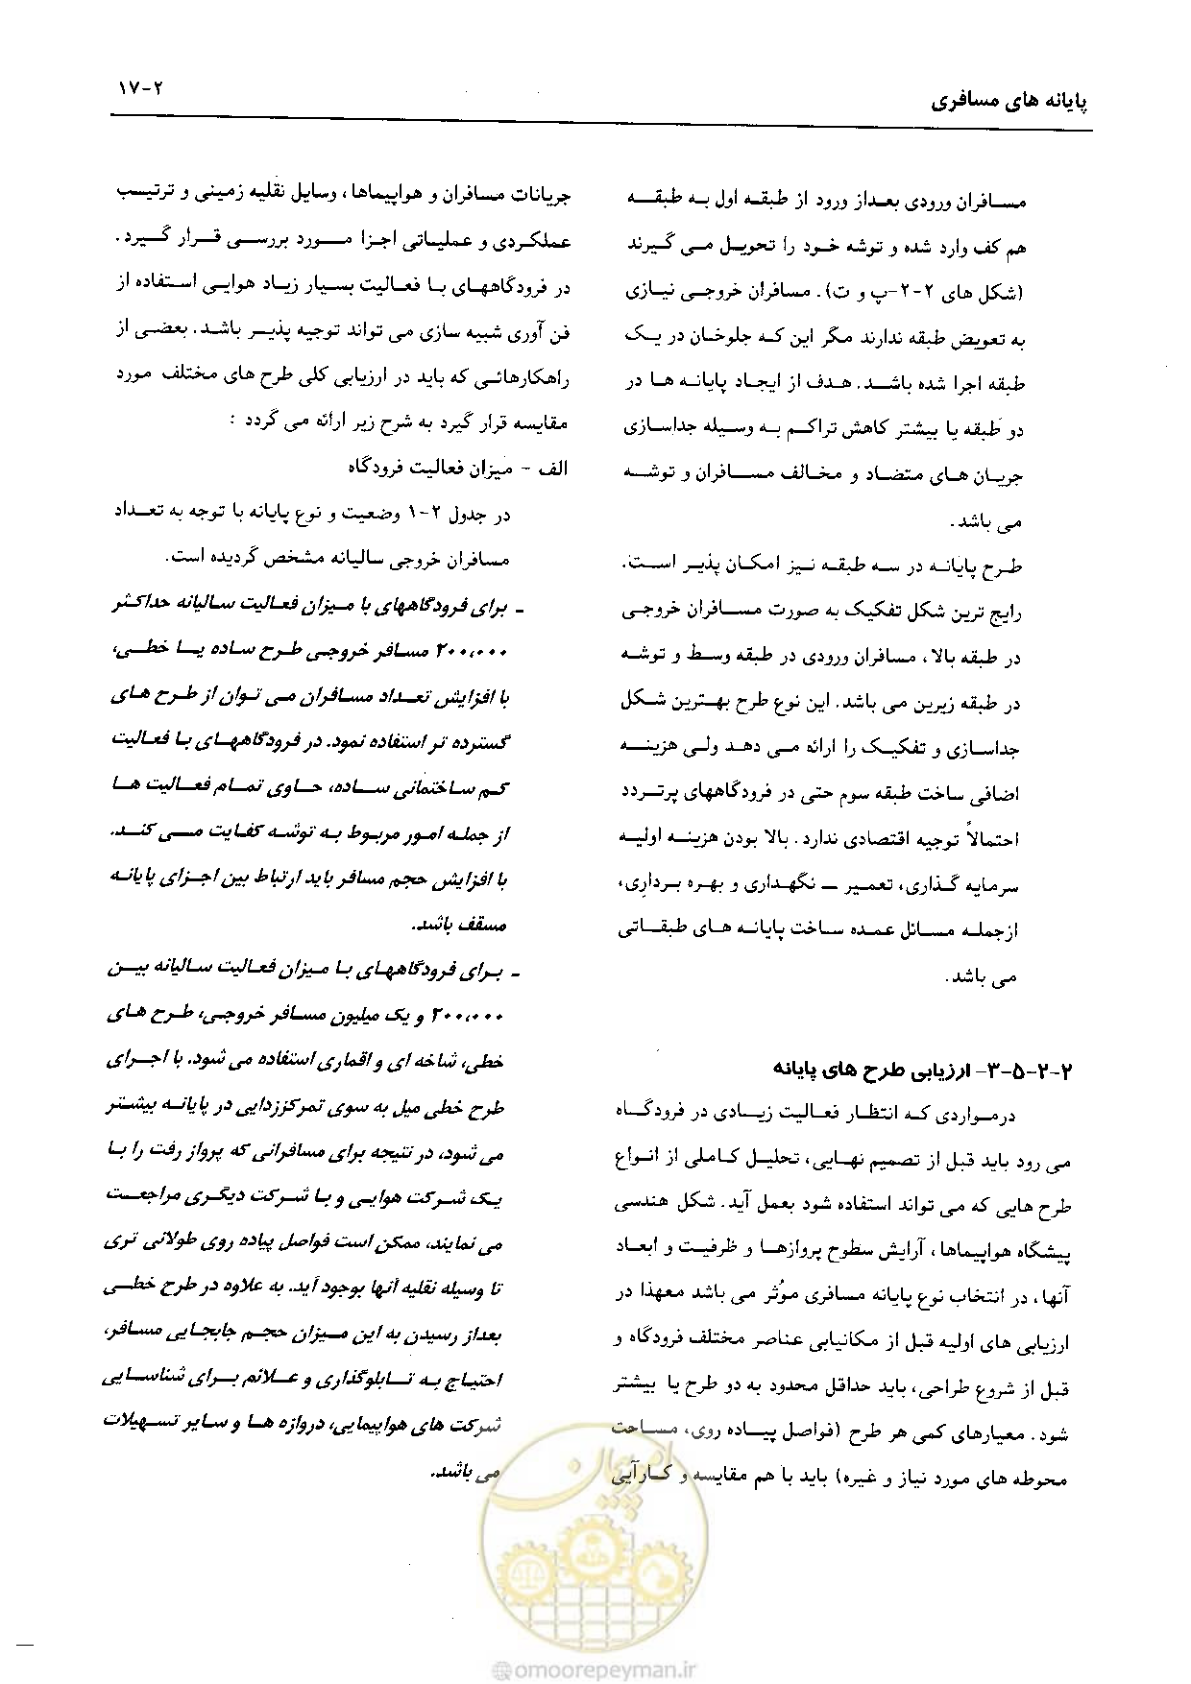 پایانه های مسافری
۲-۱۷
مسافران ورودی بعداز ورود از طبقه اول به طبقه
هم کف وارد شده و توشه خود را تحویل می گیرند
(شکل های ۲-۲-پ و ت). مسافران خروجی نیازی
به تعویض طبقه ندارند مگر این که جلوخان در یک
طبقه اجرا شده باشد. هدف از ایجاد پایانه ها در
دو طبقه یا بیشتر کاهش تراکم به وسیله جداسازی
جریان های متضاد و مخالف مسافران و توشه
می باشد.
طرح پایانه در سه طبقه نیز امکان پذیر است.
رایج ترین شکل تفکیک به صورت مسافران خروجی
در طبقه بالا، مسافران ورودی در طبقه وسط و توشه
در طبقه زیرین می باشد. این نوع طرح بهترین شکل
جداسازی و تفکیک را ارائه می دهد ولی هزینه
اضافی ساخت طبقه سوم حتی در فرودگاههای پرتردد
احتمالاً توجیه اقتصادی ندارد. بالا بودن هزینه اولیه
سرمایه گذاری، تعمیر – نگهداری و بهره برداری،
ازجمله مسائل عمده ساخت پایانه های طبقاتی
می باشد.
۲-۲-۵-۳- ارزیابی طرح های پایانه
درمواردی که انتظار فعالیت زیادی در فرودگاه
می رود باید قبل از تصمیم نهایی، تحلیل کاملی از انواع
طرح هایی که می تواند استفاده شود بعمل آید. شکل هندسی
پیشگاه هواپیماها، آرایش سطوح پروازها و ظرفیت و ابعاد
آنها، در انتخاب نوع پایانه مسافری مؤثر می باشد معهذا در
ارزیابی های اولیه قبل از مکانیابی عناصر مختلف فرودگاه و
قبل از شروع طراحی، باید حداقل محدود به دو طرح یا بیشتر
شود. معیارهای کمی هر طرح (فواصل پیاده روی، مساحت
محوطه های مورد نیاز و غیره) باید با هم مقایسه و کارآیی
جریانات مسافران و هواپیماها، وسایل نقلیه زمینی و ترتیب
عملکردی و عملیاتی اجزا مورد بررسی قرار گیرد.
در فرودگاههای با فعالیت بسیار زیاد هوایی استفاده از
فن آوری شبیه سازی می تواند توجیه پذیر باشد. بعضی از
راهکارهائی که باید در ارزیابی کلی طرح های مختلف مورد
مقایسه قرار گیرد به شرح زیر ارائه می گردد :
الف - میزان فعالیت فرودگاه
در جدول ۲-۱ وضعیت و نوع پایانه با توجه به تعداد
مسافران خروجی سالیانه مشخص گردیده است.
- برای فرودگاههای با میزان فعالیت سالیانه حداکثر
۲۰۰،۰۰۰ مسافر خروجی طرح ساده یا خطی،
با افزایش تعداد مسافران می توان از طرح های
گسترده تر استفاده نمود. در فرودگاههای با فعالیت
کم ساختمانی ساده، حاوی تمام فعالیت ها
از جمله امور مربوط به توشه کفایت می کند.
با افزایش حجم مسافر باید ارتباط بین اجزای پایانه
مسقف باشد.
- برای فرودگاههای با میزان فعالیت سالیانه بین
۲۰۰،۰۰۰ و یک میلیون مسافر خروجی، طرح های
خطی، شاخه ای و اقماری استفاده می شود. با اجرای
طرح خطی میل به سوی تمرکززدایی در پایانه بیشتر
می شود، در نتیجه برای مسافرانی که پرواز رفت را با
یک شرکت هوایی و با شرکت دیگری مراجعت
می نمایند، ممکن است فواصل پیاده روی طولانی تری
تا وسیله نقلیه آنها بوجود آید. به علاوه در طرح خطی
بعداز رسیدن به این میزان حجم جابجایی مسافر،
احتیاج به تابلوگذاری و علائم برای شناسایی
شرکت های هواپیمایی، دروازه ها و سایر تسهیلات
می باشد.
امور پیمان
@omoorepeyman.ir